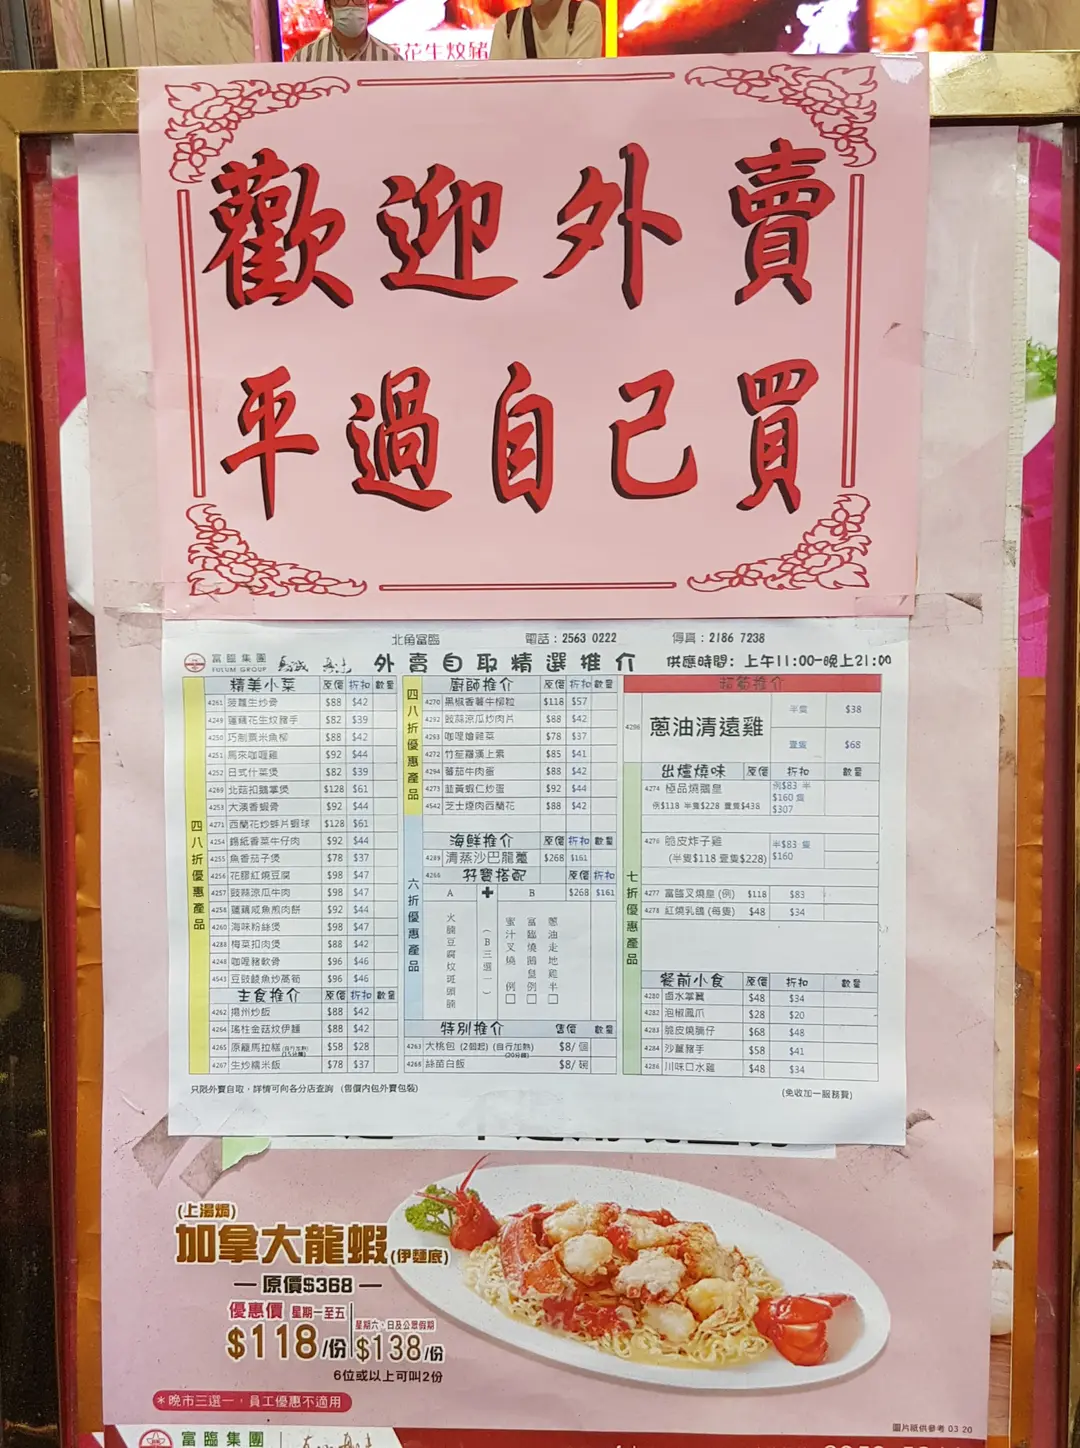 花生炆豬
歡迎外賣
平過自己買
北角富臨 電話：2563 0222 傳真：2186 7238
富臨集團
FULUM GROUP
外賣自取精選推介 供應時間：上午11:00-晚上21:00
四八折優惠產品
精美小菜 原價 折扣 數量
4261 菠蘿生炒骨 $88 $42
4249 蓮藕花生炆豬手 $82 $39
4250 巧制粟米魚柳 $88 $42
4251 馬來咖喱雞 $92 $44
4252 日式什菜煲 $82 $39
4269 北菇扣鵝掌煲 $128 $61
4253 大漠香蝦骨 $92 $44
4271 西蘭花炒蚌片蝦球 $128 $61
4254 錫紙香菜牛仔肉 $92 $44
4255 魚香茄子煲 $78 $37
4256 花膠紅燒豆腐 $98 $47
4257 豉蒜涼瓜牛肉 $98 $47
4258 蓮藕咸魚煎肉餅 $92 $44
4260 海味粉絲煲 $98 $47
4288 梅菜扣肉煲 $88 $42
4248 咖喱豬軟骨 $96 $46
4543 豆豉鯪魚炒萵筍 $96 $46
主食推介 原價 折扣 數量
4262 揚州炒飯 $88 $42
4264 瑤柱金菇炆伊麵 $88 $42
4265 原籠馬拉糕 (自行加熱)(15分鐘) $58 $28
4267 生炒糯米飯 $78 $37
四八折優惠產品
廚師推介 原價 折扣 數量
4270 黑椒香薯牛柳粒 $118 $57
4292 豉蒜涼瓜炒肉片 $88 $42
4293 咖喱燴雜菜 $78 $37
4272 竹笙羅漢上素 $85 $41
4294 蕃茄牛肉蛋 $88 $42
4273 韮黃蝦仁炒蛋 $92 $44
4542 芝士煙肉西蘭花 $88 $42
六折優惠產品
海鮮推介 原價 折扣 數量
4289 清蒸沙巴龍躉 $268 $161
4266 孖寶搭配 原價 折扣
A ✚ B $268 $161
火腩豆腐炆斑頭腩
(B三選一)
蜜汁叉燒 例 □
富臨燒鵝皇 例 □
蔥油走地雞 半 □
特別推介 售價 數量
4263 大桃包 (2個起) (自行加熱)(20分鐘) $8/ 個
4268 絲苗白飯 $8/ 碗
超筍推介
4296 蔥油清遠雞 半隻 $38
壹隻 $68
七折優惠產品
出爐燒味 原價 折扣 數量
4274 極品燒鵝皇 例$83 半$160 隻$307
例$118 半隻$228 壹隻$438
4276 脆皮炸子雞 半$83 隻$160
(半隻$118 壹隻$228)
4277 富臨叉燒皇 (例) $118 $83
4278 紅燒乳鴿 (每隻) $48 $34
餐前小食 原價 折扣 數量
4280 鹵水掌翼 $48 $34
4282 泡椒鳳爪 $28 $20
4283 脆皮燒腩仔 $68 $48
4284 沙薑豬手 $58 $41
4286 川味口水雞 $48 $34
只限外賣自取，詳情可向各分店查詢 (售價內包外賣包裝) (免收加一服務費)
(上湯焗)
加拿大龍蝦(伊麵底)
原價$368
優惠價 星期一至五 星期六、日及公眾假期
$118/份 $138/份
6位或以上可叫2份
*晚市三選一，員工優惠不適用
圖片祇供參考 03 20
富臨集團